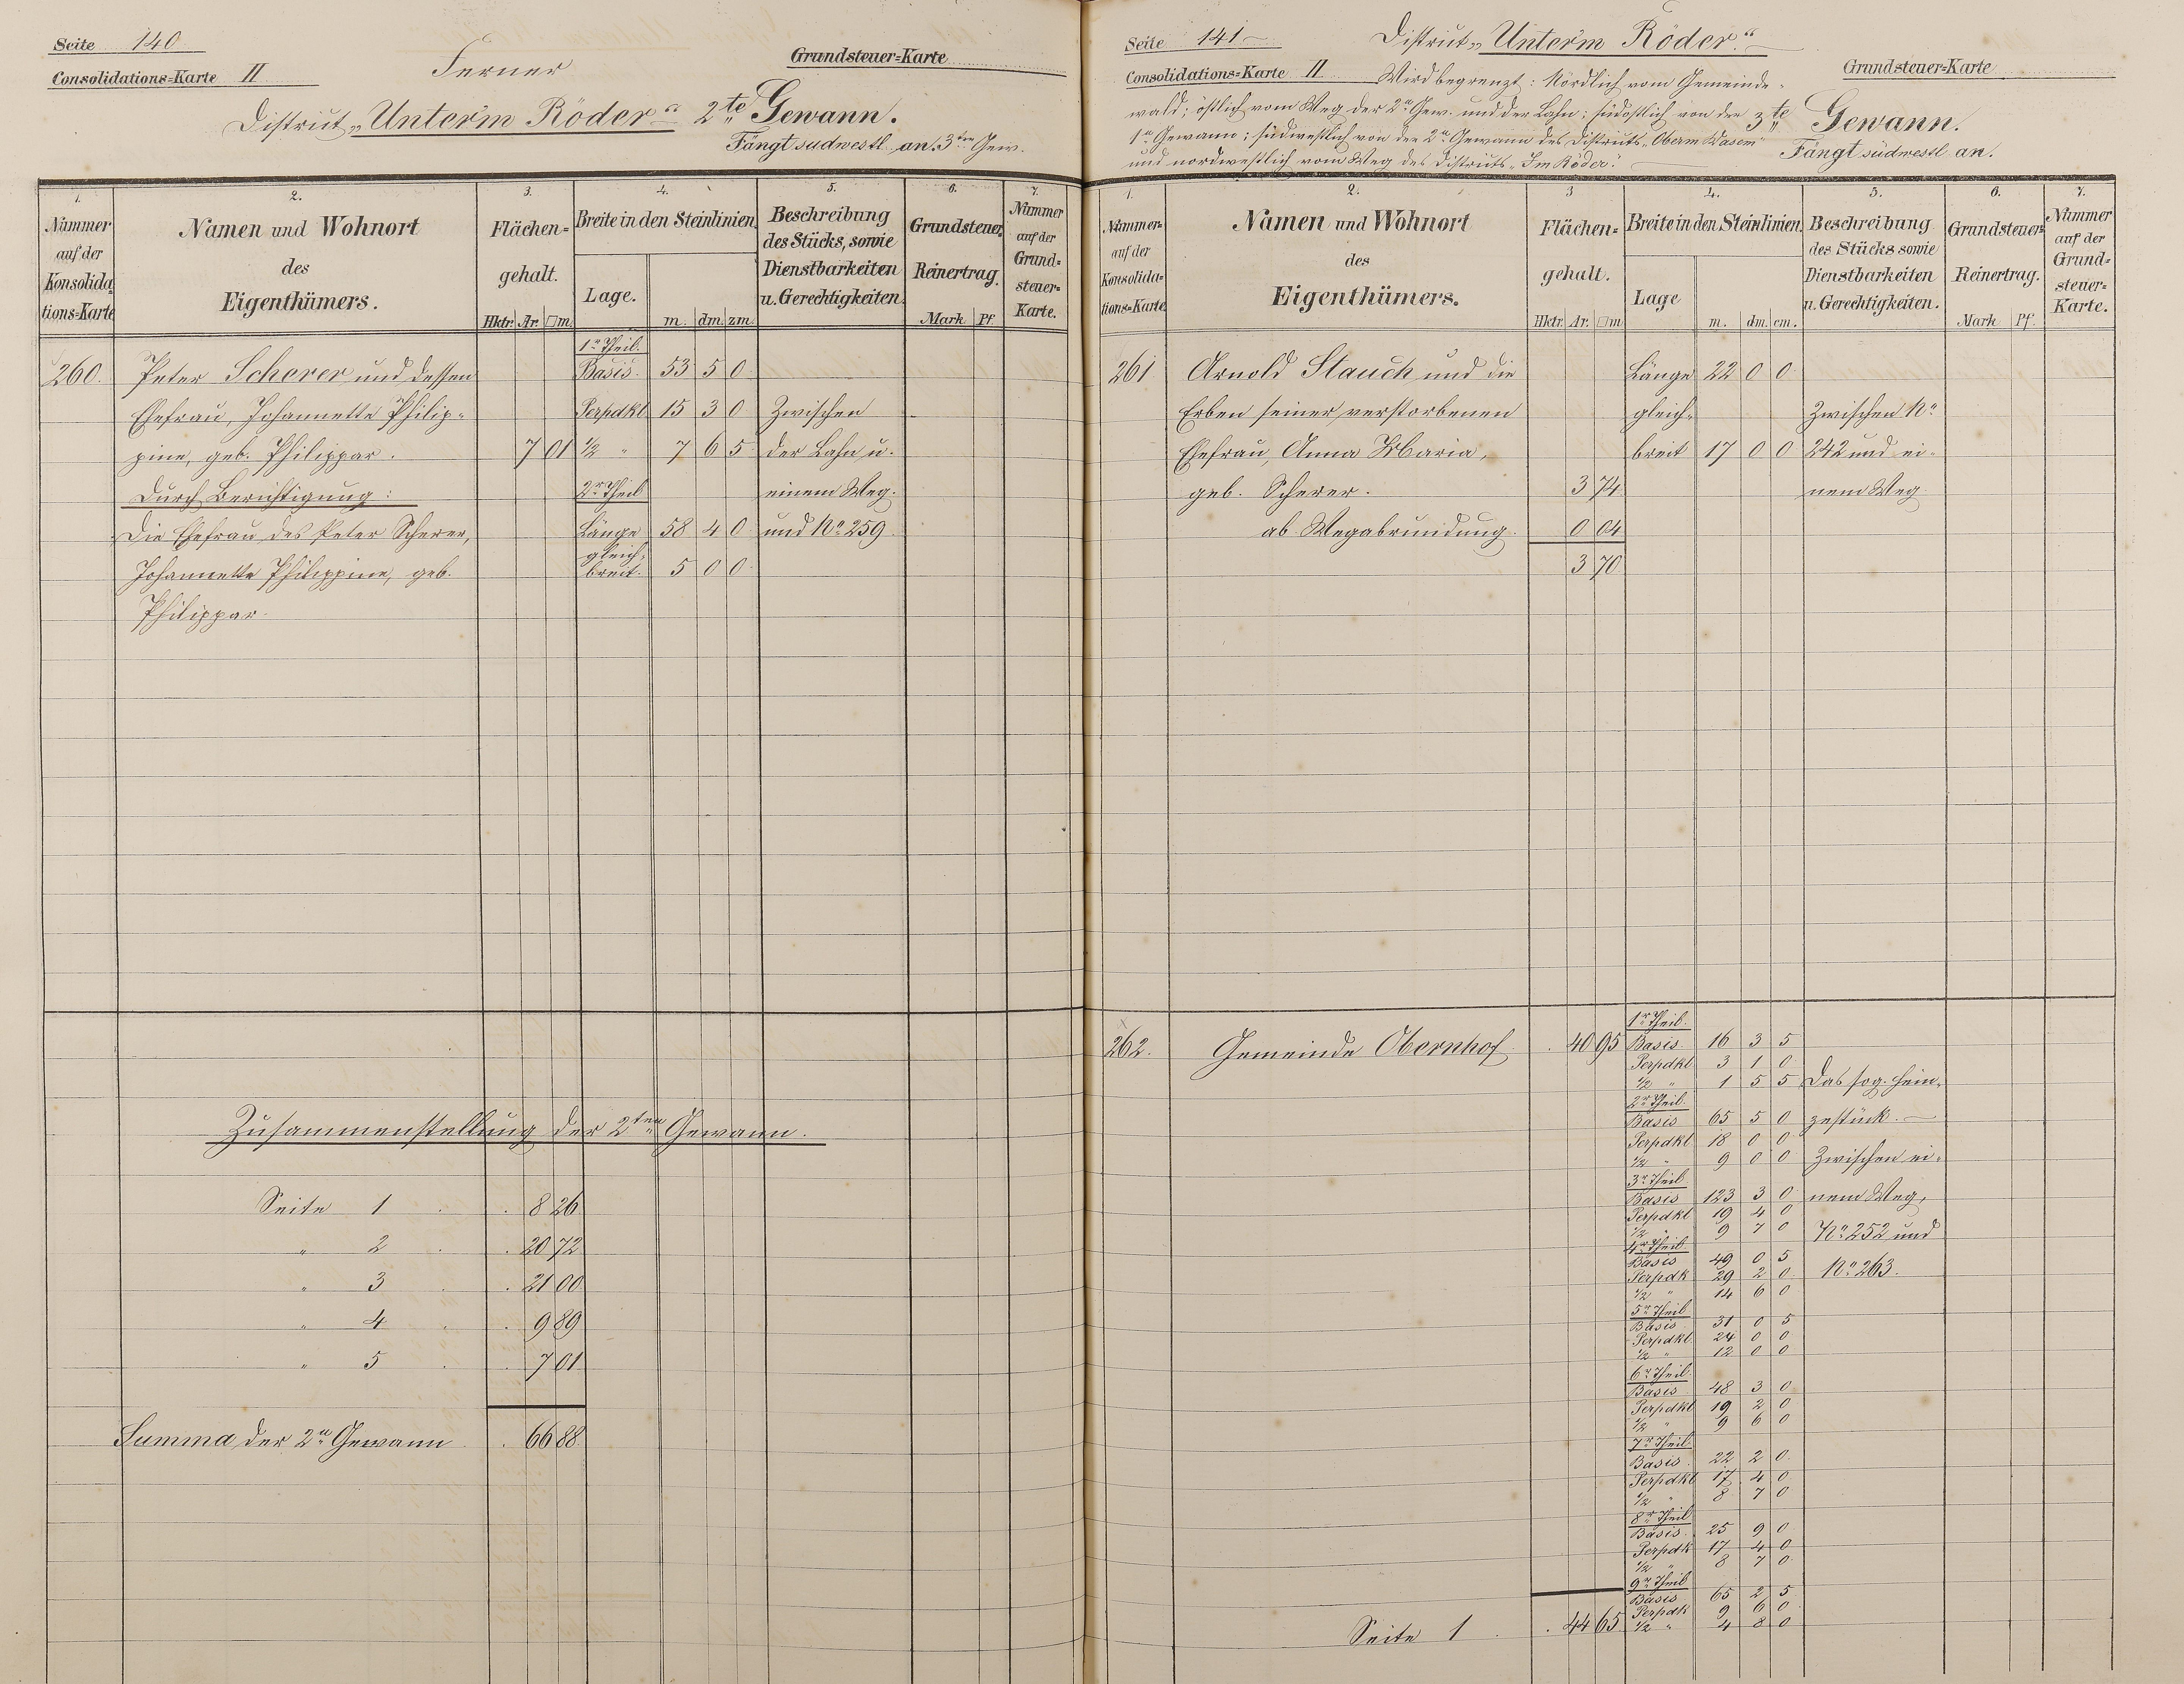 Seite 140
Consolidations=Karte II
Ferner
Grundsteuer=Karte
District „Unter'm Röder“ 2te Gewann.
Fängt südwestl. an 3ten Gew.
1. 2. 3. 4. 5. 6. 7.
Nummer auf der Konsolidations=Karte
Namen und Wohnort des Eigenthümers.
Flächen=gehalt.
Hktr. Ar. □m.
Breite in den Steinlinien.
Lage.
m. dm. zm.
Beschreibung des Stücks, sowie Dienstbarkeiten u. Gerechtigkeiten.
Grundsteuer Reinertrag.
Mark Pf.
Nummer auf der Grund=steuer=Karte.
1r Theil.
260. Peter Scherer und dessen Basis. 53 5 0
Ehefrau, Johannette Philip= Perpdkl 15 3 0 Zwischen
pine, geb. Philippar. 7 01 1/2 „ 7 6 5 der Lahn u.
Durch Berichtigung: 2r Theil einem Weg.
Die Ehefrau des Peter Scherer, Länge 58 4 0 und No 259
Johannette Philippine, geb. gleich=breit. 5 0 0
Philippar.
Zusammenstellung der 2ten Gewann.
Seite 1 . . 8 26
„ 2 . . 20 72
„ 3 . . 21 00
„ 4 . . 9 89
„ 5 . . 7 01
Summa der 2n Gewann . . 66 88
Seite 141
Consolidations=Karte II
District „Unter'm Röder.“
Grundsteuer=Karte
Wird begrenzt: Nördlich vom Gemeinde=
wald; östlich vom Weg der 2n Gew. und der Lahn; südöstlich von der
1n Gewann; südwestlich von der 2n Gewann des Districts „Oberm Wasem“
und nordwestlich vom Weg des Districts „Im Röder“.
3te Gewann.
Fängt südwestl. an.
1. 2. 3 4. 5. 6. 7.
Nummer auf der Konsolida=tions=Karte
Namen und Wohnort des Eigenthümers.
Flächen=gehalt.
Hktr. Ar. □m
Breite in den Steinlinien.
Lage
m. dm. cm.
Beschreibung des Stücks sowie Dienstbarkeiten u. Gerechtigkeiten.
Grundsteuer=Reinertrag.
Mark Pf.
Nummer auf der Grund=steuer=Karte.
261 Arnold Stauch und die Länge 22 0 0
Erben seiner verstorbenen gleich= Zwischen No
Ehefrau, Anna Maria, breit 17 0 0 242 und ei=
geb. Scherer. 3 74 nem Weg
ab Wegabrundung. 0 04
3 70
1r Theil.
262. Gemeinde Obernhof . 40 95 Basis. 16 3 5
Perpdkl 3 1 0
1/2 „ 1 5 5 Das sog. Hein=
2r Theil.
Basis 65 5 0 zestück. —
Perpdkl 18 0 0
1/2 „ 9 0 0 Zwischen ei=
3r Theil
Basis 123 3 0 nem Weg,
Perpdkl 19 4 0
1/2 „ 9 7 0 No 252 und
4r Theil.
Basis 49 0 5
Perpdk 29 2 0 No 263.
1/2 „ 14 6 0
5r Theil
Basis 31 0 5
Perpdkl. 24 0 0
1/2 „ 12 0 0
6r Theil.
Basis 48 3 0
Perpdkl 19 2 0
1/2 „ 9 6 0
7r Theil
Basis. 22 2 0
Perpdkl 17 4 0
1/2 „ 8 7 0
8r Theil
Basis. 25 9 0
Perpdk 17 4 0
1/2 „ 8 7 0
9r Theil
Basis 65 2 5
Perpdk 9 6 0
Seite 1 . . 44 65 1/2 „ 4 8 0